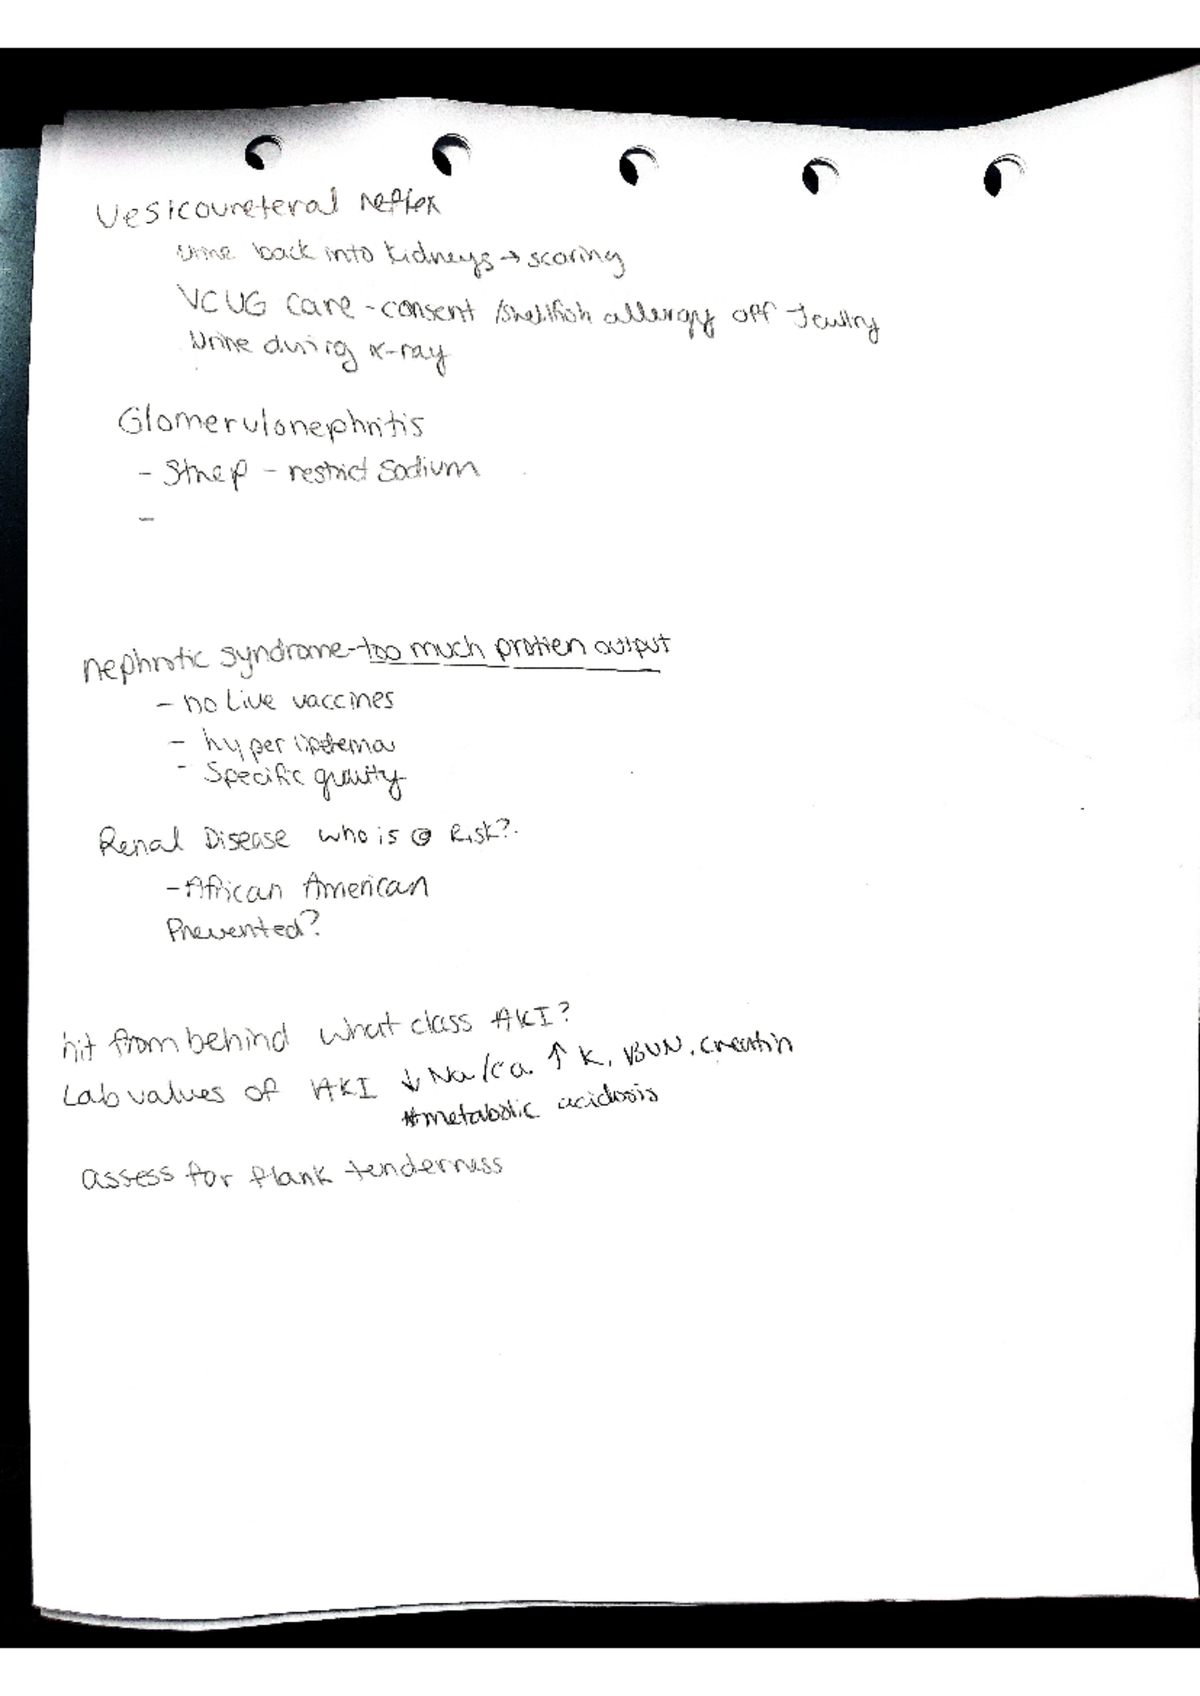 Vesicoureteral reflex
Urine back into kidneys → scaring
VCUG Care - consent /shellfish allergy off Jewlry
Urine during x-ray
Glomerulonephritis
- Strep - restrict Sodium
-
nephrotic syndrome - too much protien output
- no Live vaccines
- hyper
- Specific gravity
Renal Disease who is @ Risk?
- African American
Prevented?
hit from behind what class AKI?
Lab values of AKI ↓ Na/Ca. ↑ K, BUN, creatin
#metabolic acidosis
assess for flank tenderness